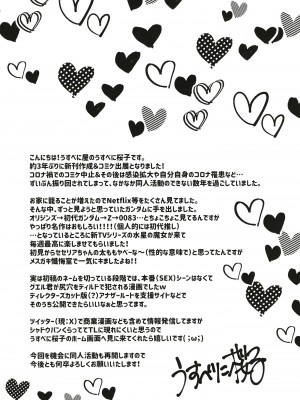 こんにちは！うすべに屋のうすべに桜子です！
約3年ぶりに新刊作成&コミケ出展となりました！
コロナ禍でのコミケ中止&その後は感染拡大や自分自身のコロナ罹患など…
ずいぶん振り回されてしまって、なかなか同人活動のできない数年を過ごしていました。
お家に籠ることが増えたのでNetflix等をたくさん見てました。
そんな中、ずっと見ようと思っていたガンダムに手を出しました。
オリジンズ→初代ガンダム→Z→0083…とちょこちょこ見てるんですが
やっぱり名作はおもしろい!!!!(個人的には初代推し)
…となっているところに新TVシリーズの水星の魔女が来て
毎週最高に楽しませてもらいました！
初見からセセリアちゃんの太ももヤベ〜な〜(性的な意味で)と思ってたんですが
メスガキ懺悔室で一気にキましたよね!!
実は初稿のネームを切っている段階では、本番(SEX)シーンはなくて
グエル君が尻穴をディルドで犯される漫画でしたw
ディレクターズカット版(?)アナザールートを支援サイトなどで
そのうち公開できたらいいなあと思ってます。
ツイッター(現:X)で商業漫画なども含めて情報発信してますが
シャドウバンくらっててTLに現れにくいと思うので
うすべに桜子のホーム画面へ見に来てくれたら嬉しいです(;ω;)
今回を機会に同人活動も再開しますので
今後とも何卒よろしくお願いいたします！
うすべに桜子